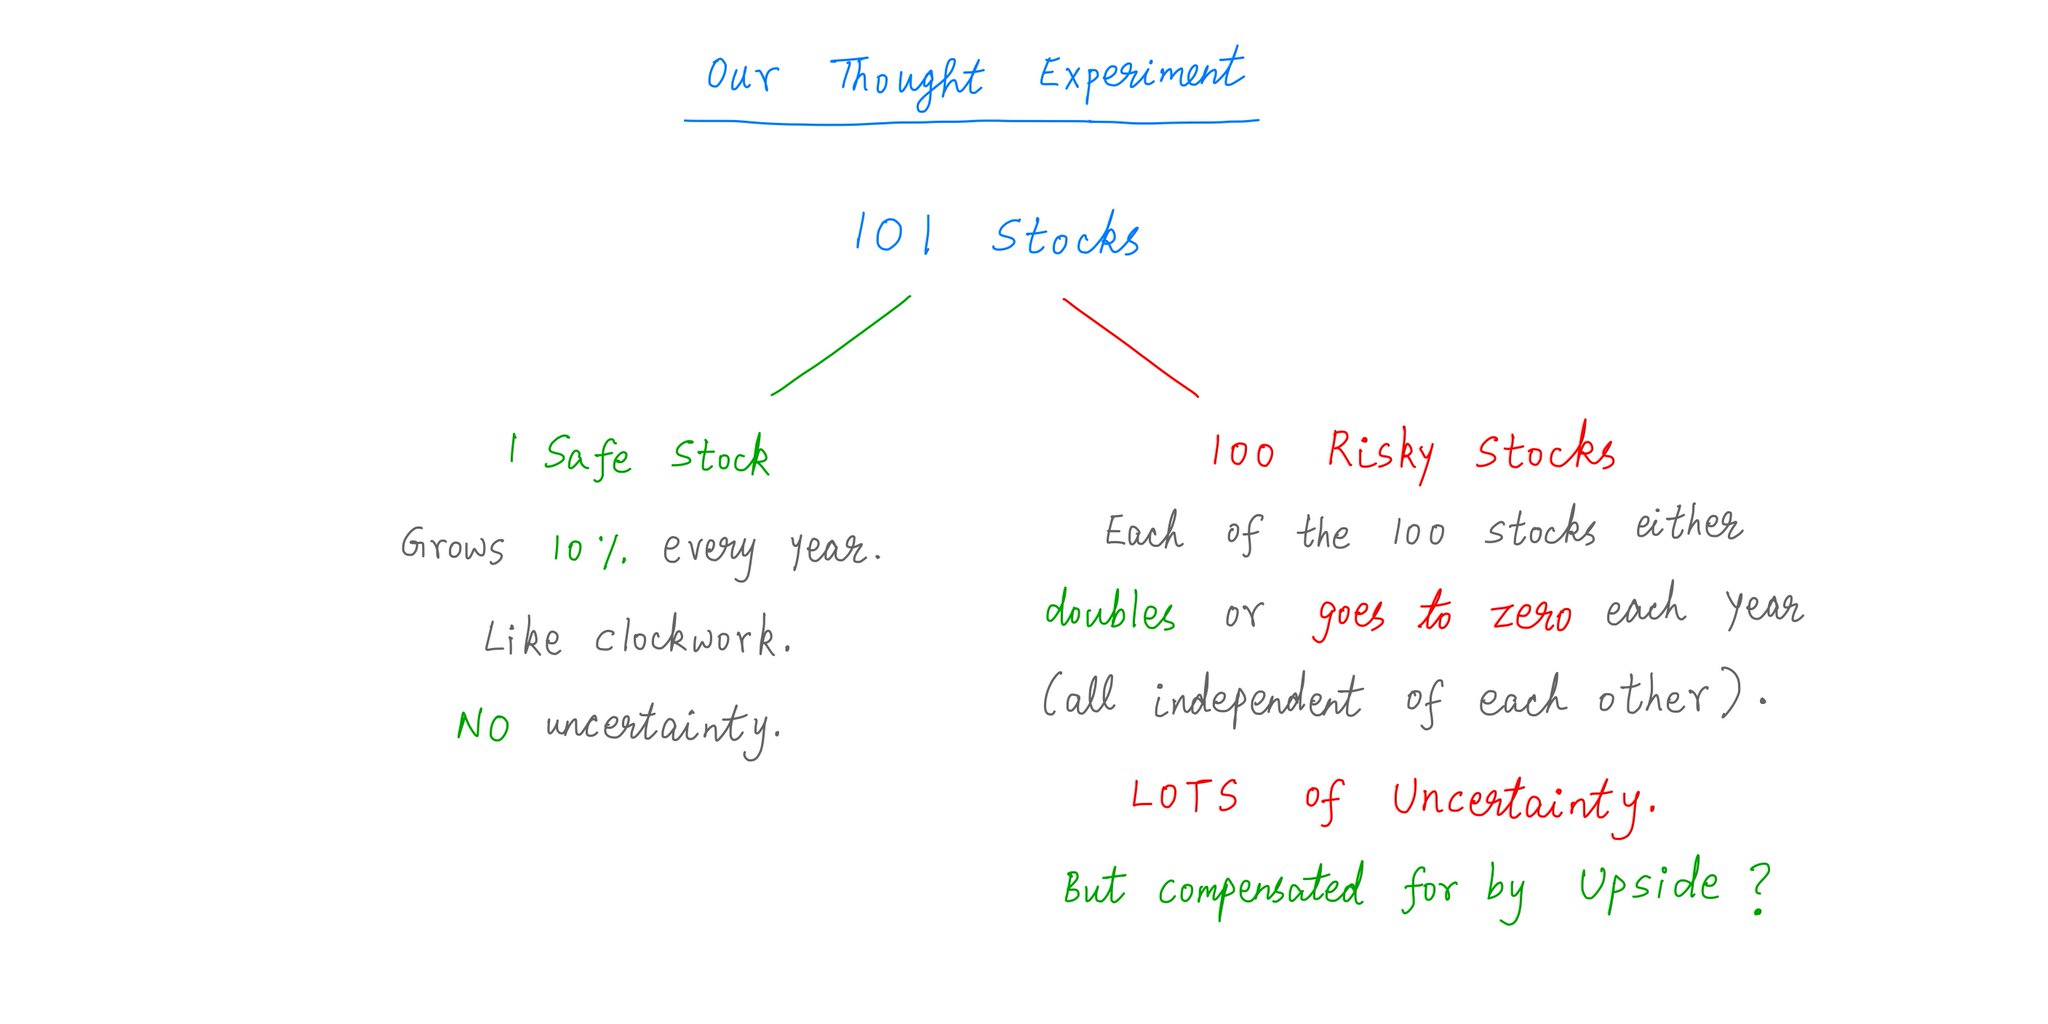 Our Thought Experiment
101 Stocks
1 Safe Stock
Grows 10% every year.
Like clockwork.
NO uncertainty.
100 Risky Stocks
Each of the 100 stocks either
doubles or goes to zero each year
(all independent of each other).
LOTS of Uncertainty.
But compensated for by Upside?